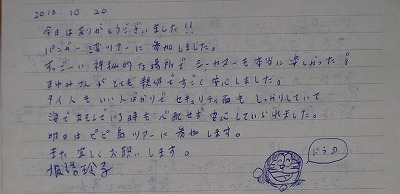 2010.10.20
今日はありがとうございました!!
パンガー湾ツアーに参加しました。
すっごーい神秘的な場所で シーカヌーも本当に楽しかった!!
まゆみさんがとても親切ですごく安心しました。
タイ人もいい人ばかりでセキュリティ面もしっかりしていて
海で
何時も心配せず安心していられました。
明日はピピ島ツアーに参加します。
また宜しくお願いします。
玲子
ドラの